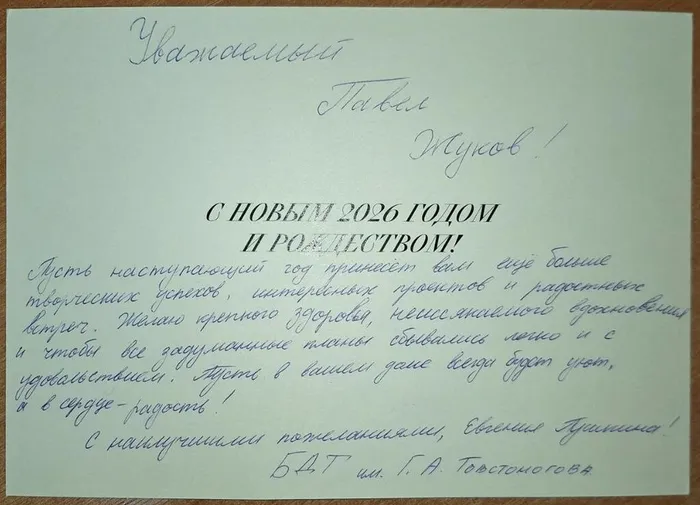 Уважаемый
Павел
Жуков!
С НОВЫМ 2026 ГОДОМ
И РОЖДЕСТВОМ!
Пусть наступающий год принесёт вам ещё больше
творческих успехов, интересных проектов и радостных
встреч. Желаю крепкого здоровья, неиссякаемого вдохновения
и чтобы все задуманные планы сбывались легко и с
удовольствием. Пусть в вашем доме всегда будет уют,
а в сердце - радость!
С наилучшими пожеланиями, Евгения Пушкина!
БДТ им. Г. А. Товстоногова